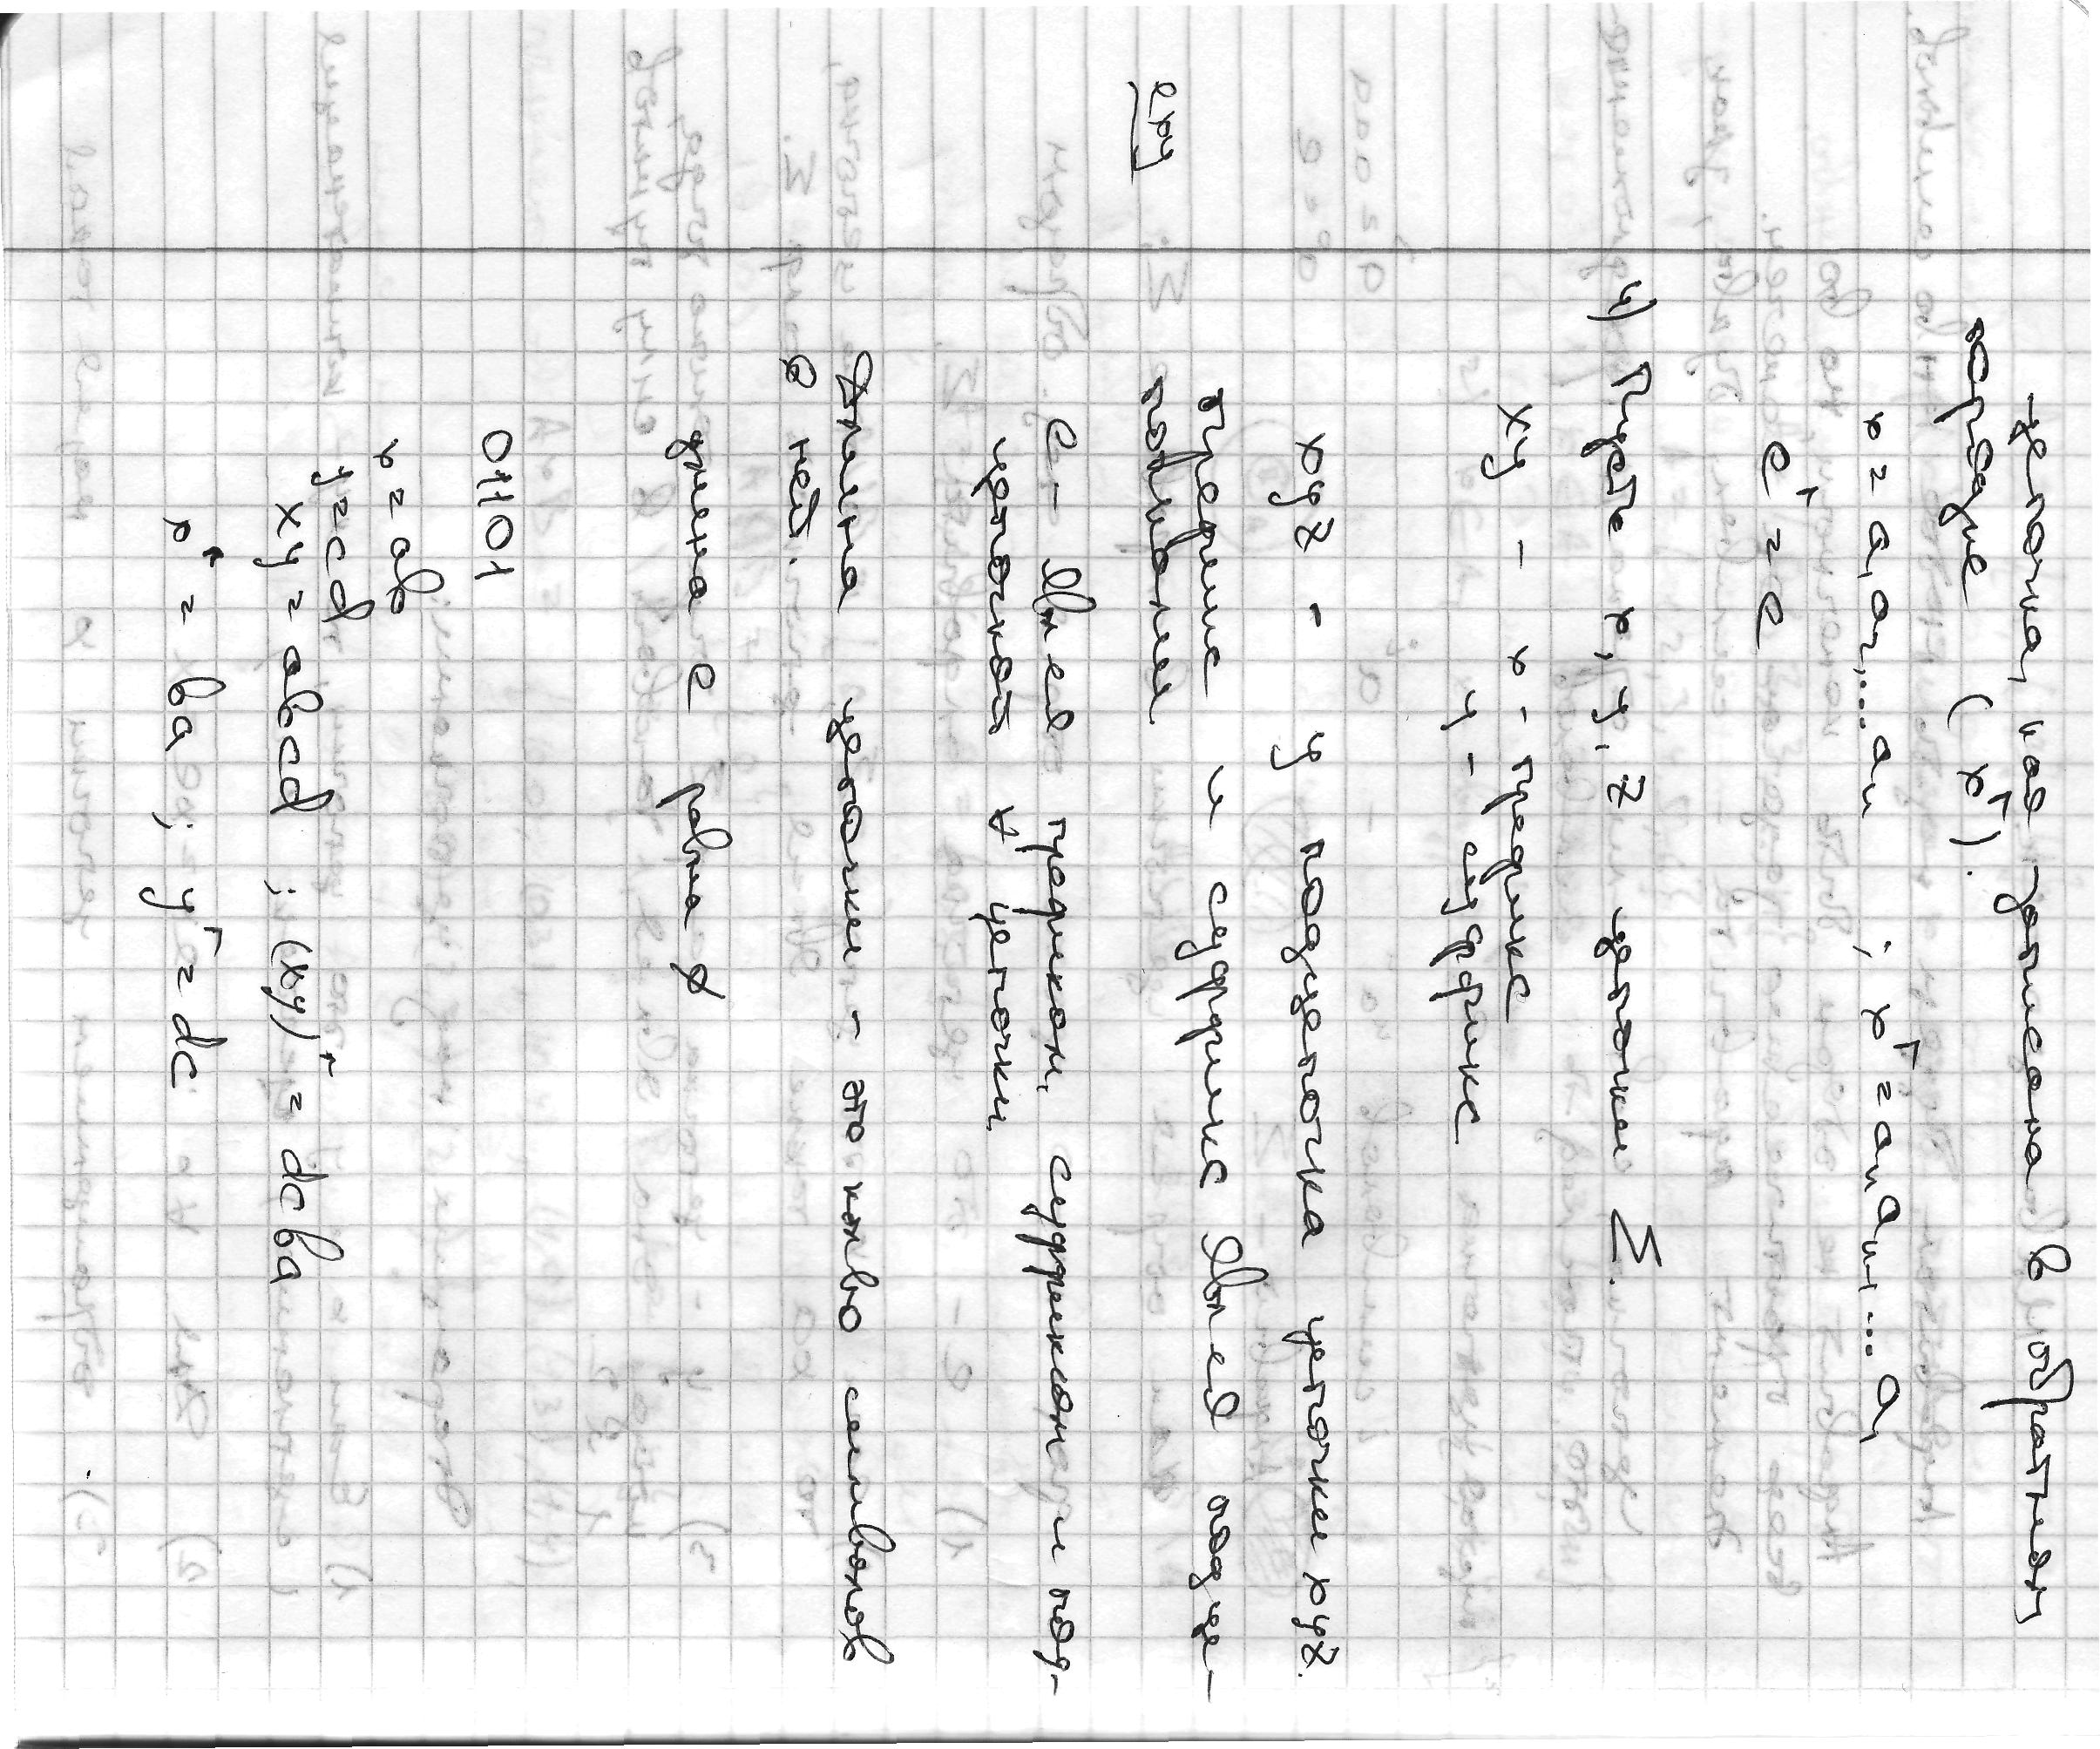 -цепочка, кая записана в обратном
порядке (x^r).
x = a₁a₂...an ; x^r = an an-1...a₁
e^r = e
4) Пусть x, y, z цепочки Σ.
xy - x - префикс
y - суффикс
xyz - y подцепочка цепочки xyz.
Префикс и суффикс явл-ся подце-
почками
exy
e - явл-ся префиксом, суффиксом и под-
цепочкой ∀ цепочки
Длина цепочки - это кол-во символов
в ней.
длина e равна 0
01101
x = ab
y = cd
xy = abcd ; (xy)^r = dcba
x^r = ba ; y^r = dc